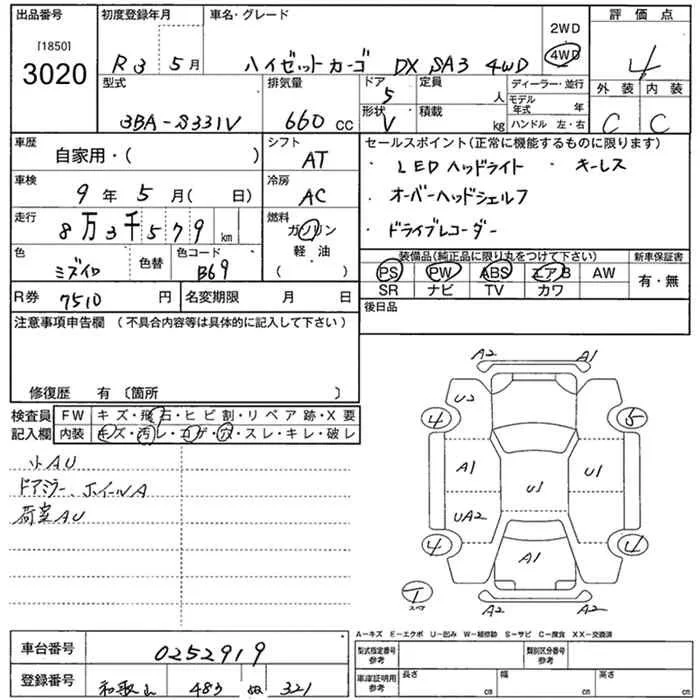 出品番号
[1850]
3020
初度登録年月
R3 5月
車名・グレード
ハイゼットカーゴ DX SA3 4WD
2WD
4WD
評価点
4
型式
3BA-S331V
排気量
660 cc
ドア
5
形状
V
定員
人
積載
kg
ディーラー・並行
モデル年式 年
ハンドル 左・右
外装 内装
C C
車歴
自家用・( )
シフト
AT
セールスポイント(正常に機能するものに限ります)
・LEDヘッドライト ・キーレス
・オーバーヘッドシェルフ
・ドライブレコーダー
車検
9年 5月( 日)
冷房
AC
走行
8万3千579km
燃料
ガソリン
軽油
( )
色
ミズイロ
色替
色コード
B69
装備品(純正品に限り丸をつけて下さい)
PS PW ABS エアB AW
SR ナビ TV カワ
新車保証書
有・無
R券 7510 円
名変期限 月 日
後日品
注意事項申告欄 (不具合内容等は具体的に記入して下さい)
修復歴 有〔箇所 〕
検査員
記入欄
FW キズ・飛石・ヒビ割・リペア跡・X要
内装 キズ・汚レ・コゲ・穴・スレ・キレ・破レ
小AU
ドアミラー、ホイールA
荷室AU
A2 A1
U2
4 5
A1 U1 U1
UA2
4 4
A1
T
スペア
A2 A2
A-キズ E-エクボ U-凹み W-補修跡 S-サビ C-腐食 XX-交換済
車台番号
0252919
登録番号
和歌山 483 ぬ 321
型式指定番号
参考
類別区分番号
参考
車庫証明用
参考
長さ cm
幅 cm
高さ cm